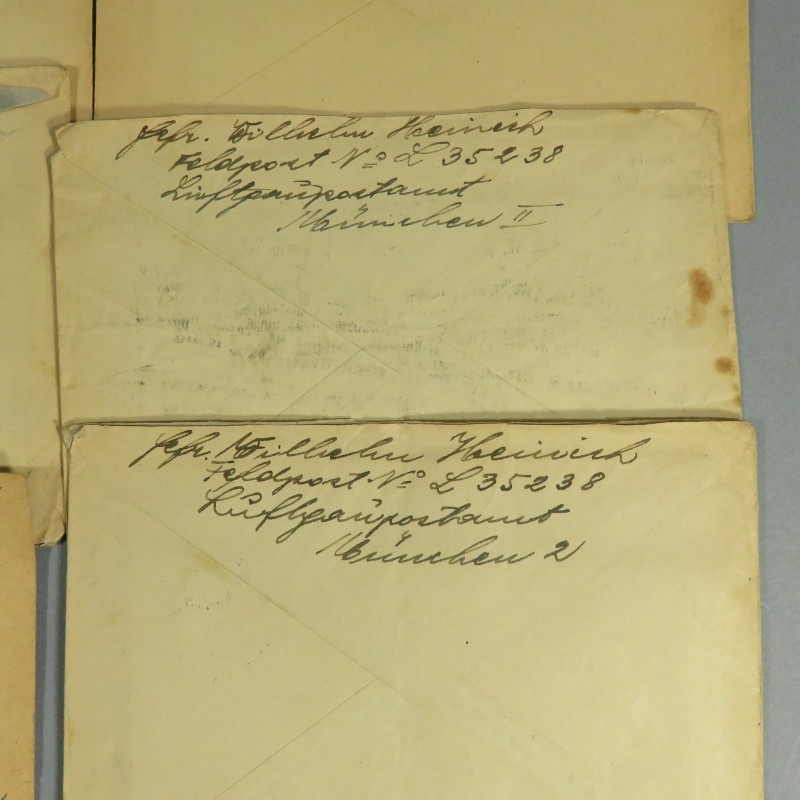 Gefr. Wilhelm Heinrich
Feldpost No L 35238
Luftgaupostamt
München II
Gefr. Wilhelm Heinrich
Feldpost No L 35238
Luftgaupostamt
München 2